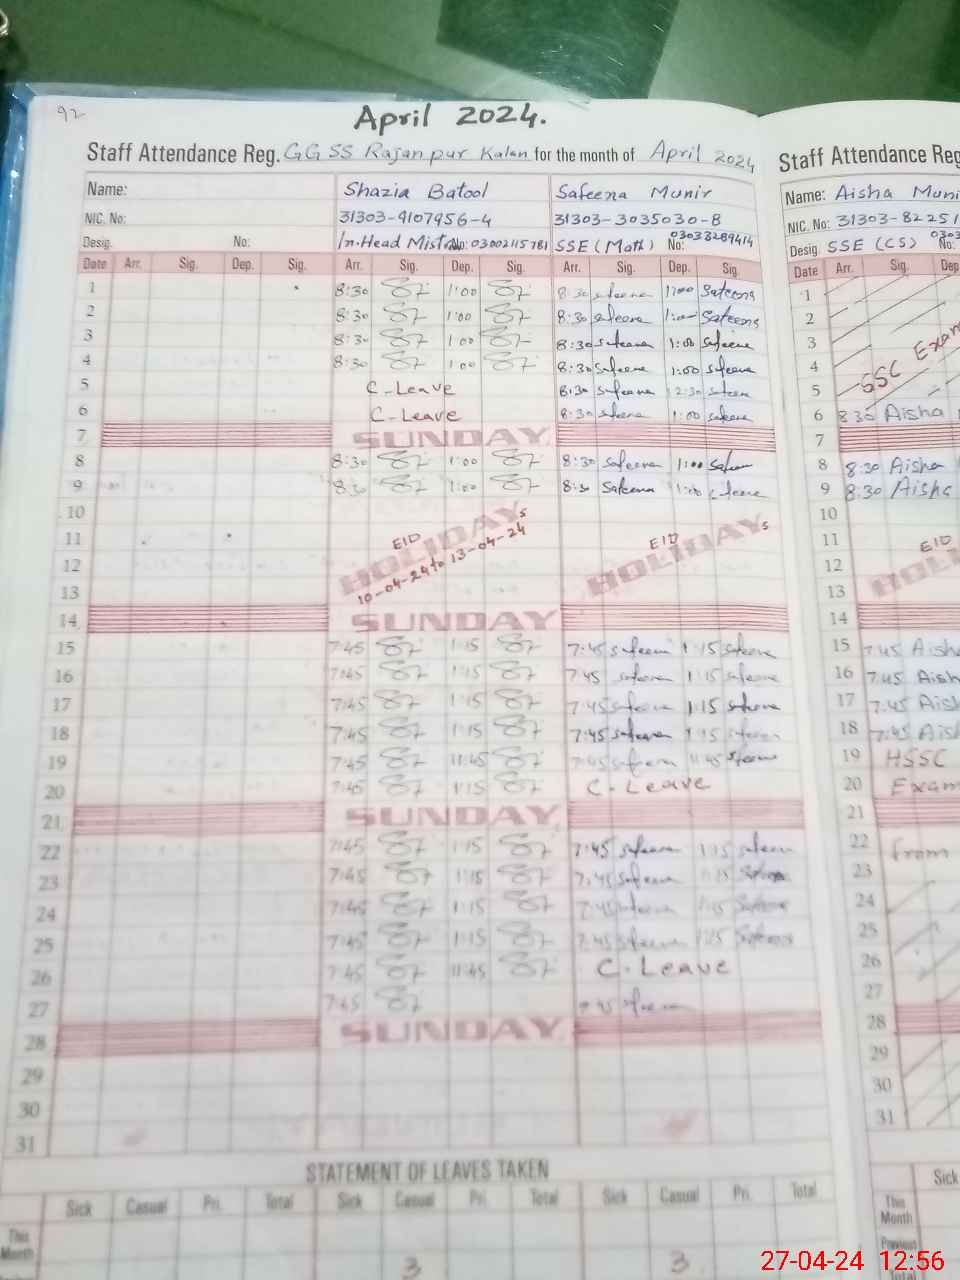 92
April 2024.
Staff Attendance Reg. GGSS Rajanpur Kalan for the month of April 2024 Staff Attendance Reg
Name: Shazia Batool Safeena Munir Name: Aisha Muni
NIC. No: 31303-9107956-4 31303-3035030-8 NIC. No: 31303-82251
Desig. No: In.Head Mistr No: 03002115781 SSE (Math) No: 03033289414 Desig. SSE (CS) No: 0303
Date Arr. Sig. Dep. Sig. Arr. Sig. Dep. Sig. Arr. Sig. Dep. Sig. Date Arr. Sig. Dep
1 8:30 1:00 8:30 safeena 1:00 Safeena 1
2 8:30 1:00 8:30 safeena 1:00 Safeena 2
3 8:30 1:00 8:30 safeena 1:00 safeena 3
4 8:30 1:00 8:30 safeena 1:00 safeena 4 SSC Exam
5 C-Leave 8:30 safeena 12:30 safeena 5
6 C-Leave 8:30 safeena 1:00 safeena 6 8:30 Aisha
7 SUNDAY 7
8 8:30 1:00 8:30 safeena 1:00 safeena 8 8:30 Aisha
9 8:30 1:00 8:30 Safeena 1:00 safeena 9 8:30 Aisha
10 10
11 EID HOLIDAYs EID HOLIDAYs 11 EID
12 10-04-24 to 13-04-24 12 HOLID
13 13
14 SUNDAY 14
15 7:45 1:15 7:45 safeena 1:15 safeena 15 7:45 Aisha
16 7:45 1:15 7:45 safeena 1:15 safeena 16 7:45 Aish
17 7:45 1:15 7:45 safeena 1:15 safeena 17 7:45 Aish
18 7:45 1:15 7:45 safeena 1:15 safeena 18 7:45 Ais
19 7:45 11:45 7:45 safeena 11:45 safeena 19 HSSC
20 7:45 1:15 C-Leave 20 Exam
21 SUNDAY 21
22 7:45 1:15 7:45 safeena 1:15 safeena 22 from
23 7:45 1:15 7:45 safeena 1:15 Safeena 23
24 7:45 1:15 7:45 safeena 1:15 Safeena 24
25 7:45 1:15 7:45 safeena 1:15 Safeena 25
26 7:45 11:45 C-Leave 26
27 7:45 7:45 safeena 27
28 SUNDAY 28
29 29
30 30
31 31
STATEMENT OF LEAVES TAKEN
Sick Casual Pri. Total Sick Casual Pri. Total Sick Casual Pri. Total Sick
This Month 3 3 This Month
Previous
Total
27-04-24 12:56